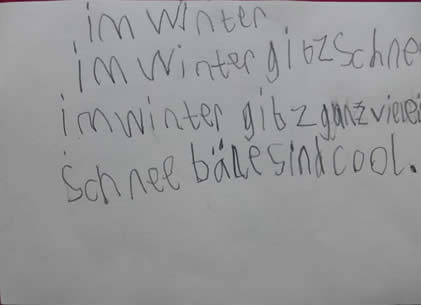 im winter
im winter gibz Schne
im winter gibz ganz viele
Schnee bälle sind cool.